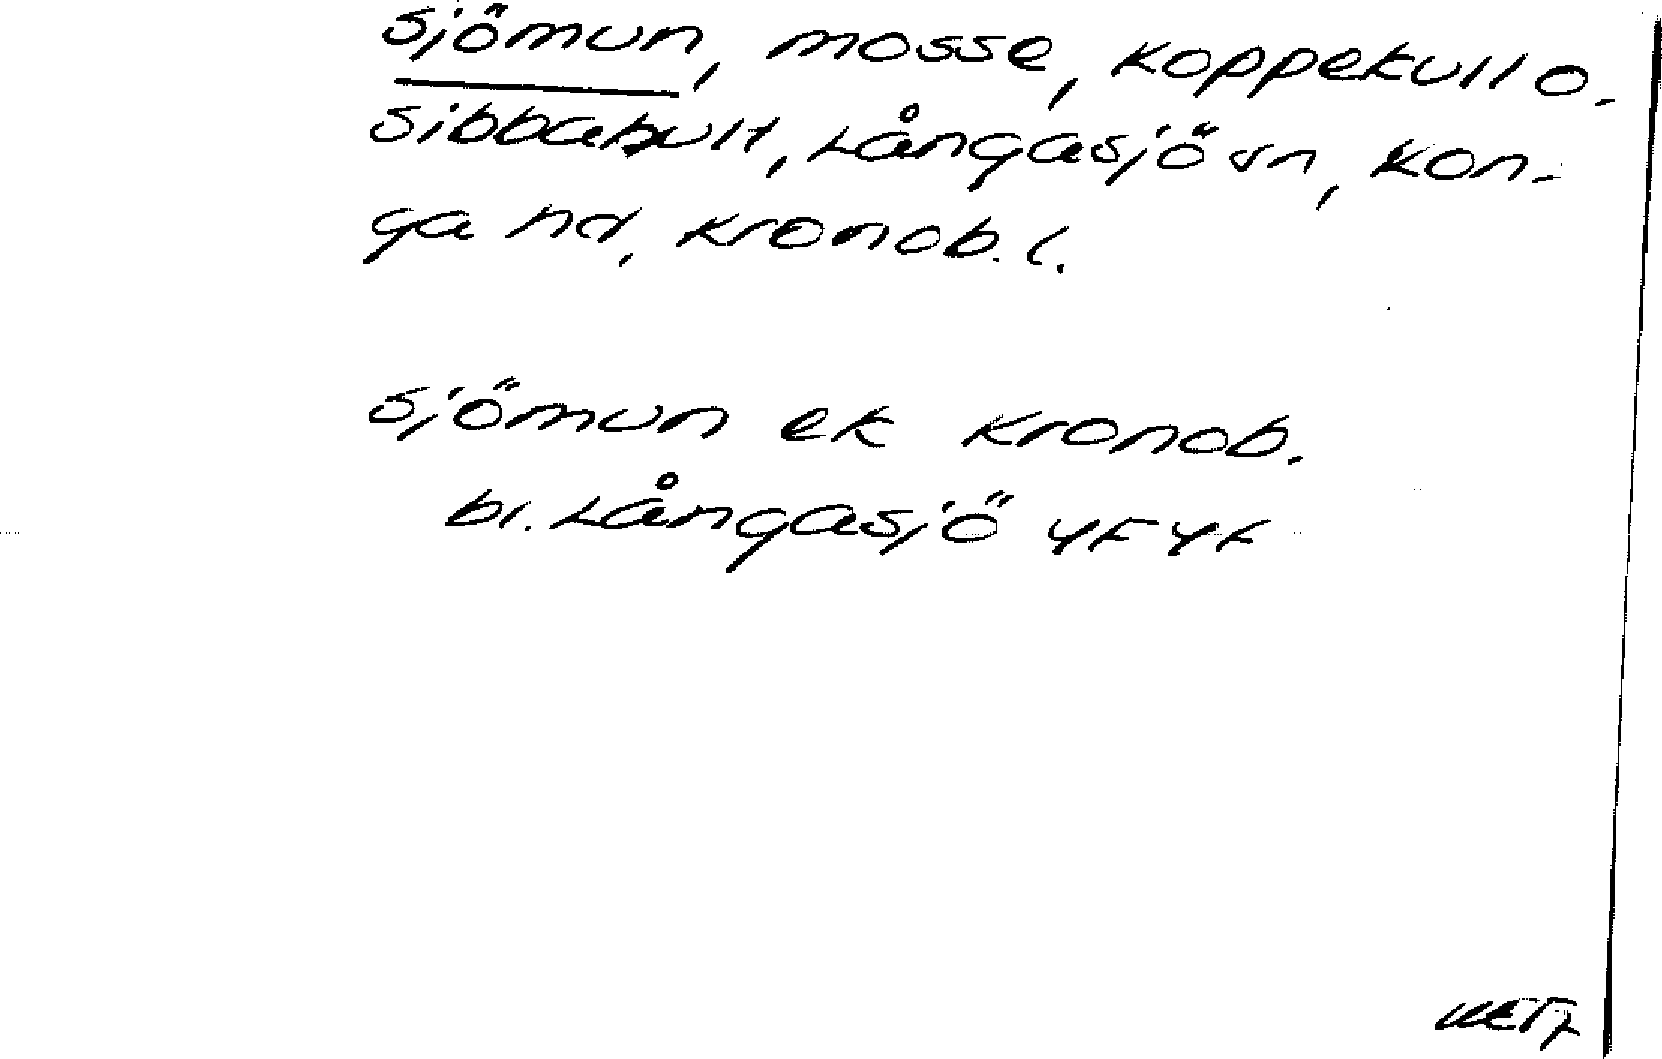 Sjömun, mosse, Koppekull o.
Sibbahult, Långasjö sn, Kon-
ga hd, Kronob. l.
Sjömun ek Kronob.
bl. Långasjö 4F 4f